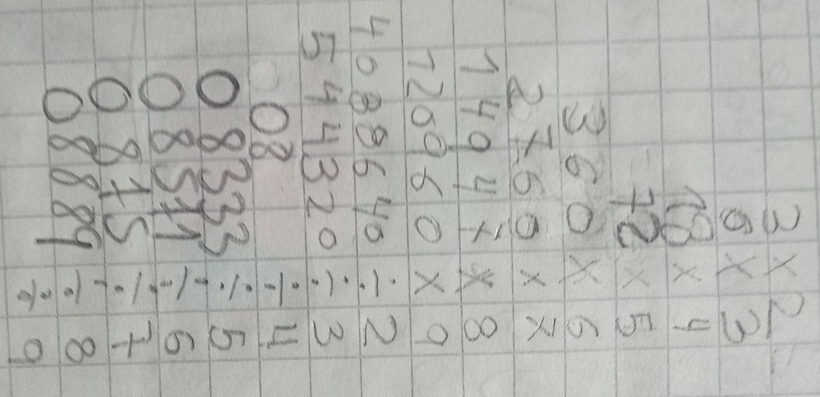 3 × 2
6 × 3
18 × 4
72 × 5
360 × 6
2760 × 7
14947 × 8
120960 × 9
4088640 ÷ 2
544320 ÷ 3
08 ÷ 4
08333 ÷ 5
08571 ÷ 6
0875 ÷ 7
08889 ÷ 8
÷ 9